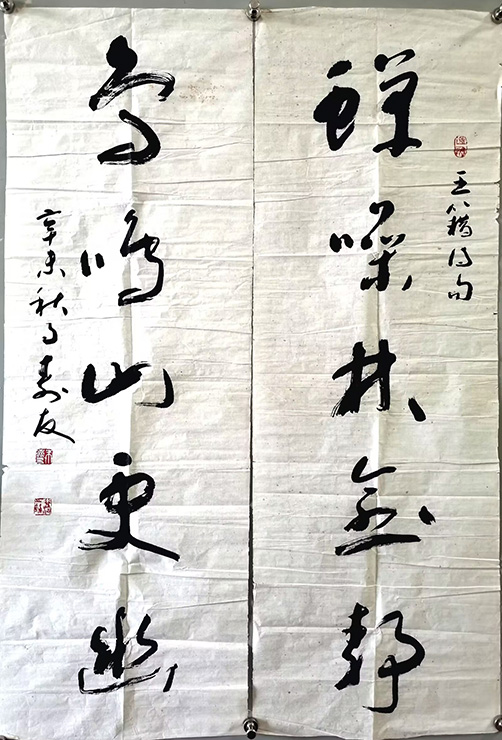 王籍诗句
蝉噪林愈静
鸟鸣山更幽
辛未秋月寿友